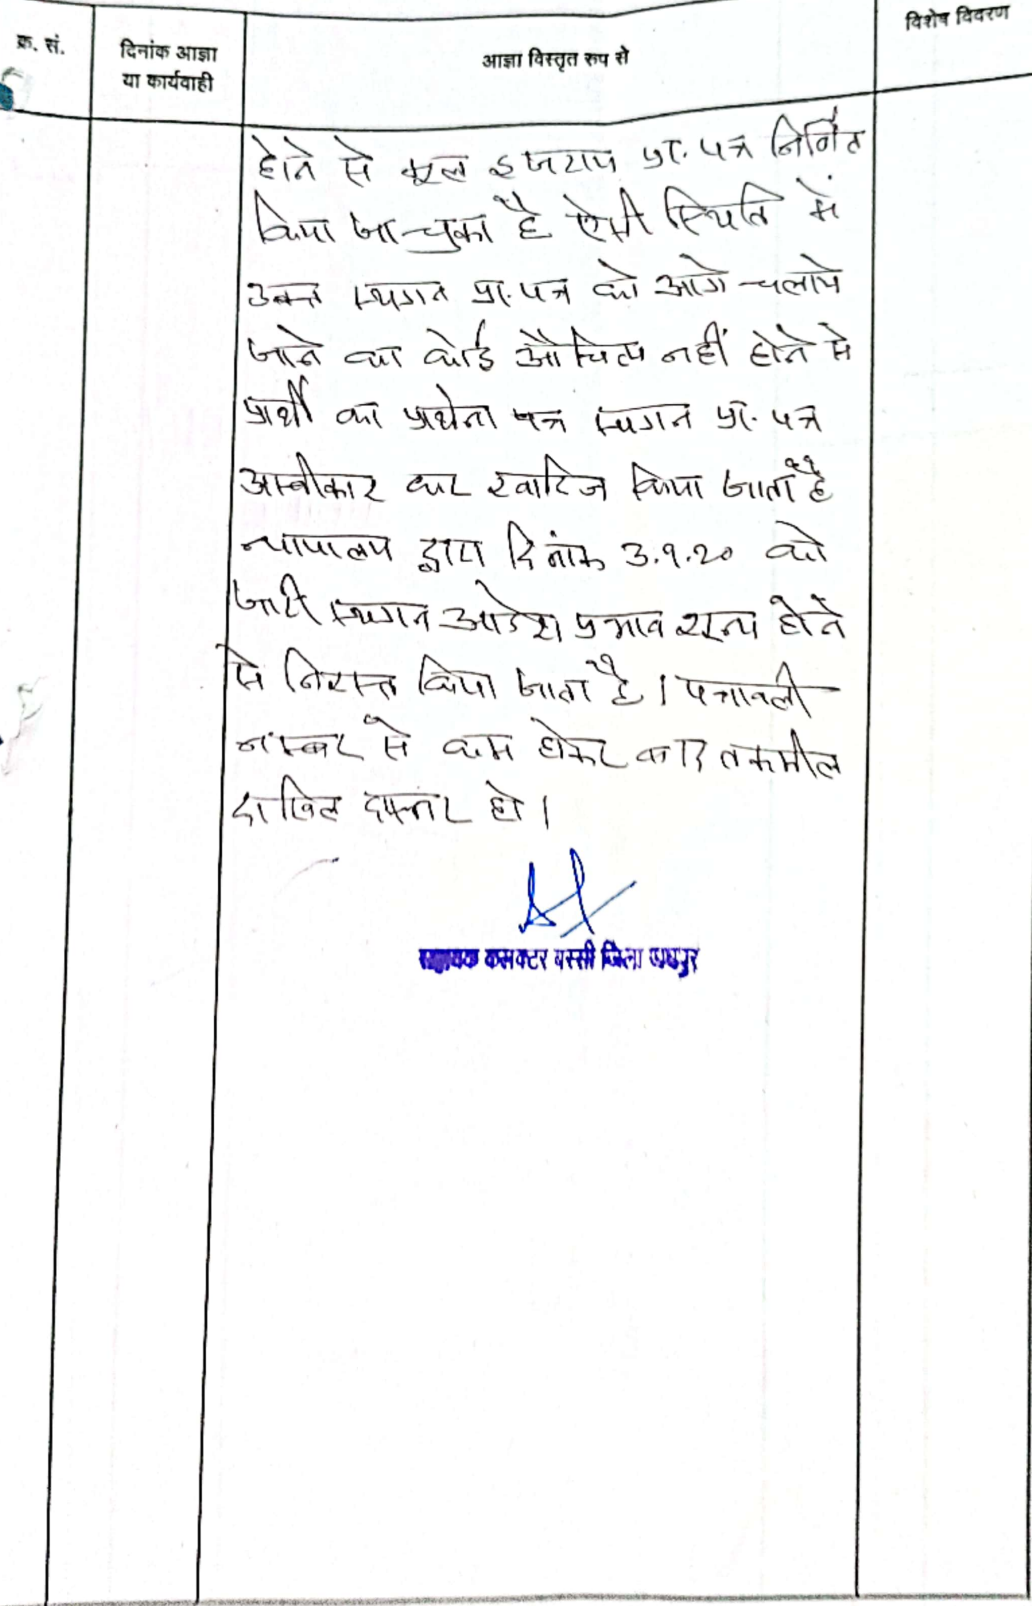 क्र. सं.
दिनांक आज्ञा
या कार्यवाही
आज्ञा विस्तृत रुप से
विशेष विवरण
होने से मूल इजराय प्रा. पत्र निर्णित
किया जा चुका है ऐसी स्थिति में
उक्त स्थगन प्रा. पत्र को आगे चलाये
जाने का कोई औचित्य नहीं होने से
प्रार्थी का प्रार्थना पत्र स्थगन प्रा. पत्र
अस्वीकार कर खारिज किया जाता है
न्यायालय द्वारा दिनांक 3.9.20 को
जारी स्थगन आदेश प्रभाव शून्य होने
से निरस्त किया जाता है। पत्रावली
नम्बर से कम होकर बाद तकमील
दाखिल दफ्तर हो।
सहायक कलक्टर बस्सी जिला जयपुर